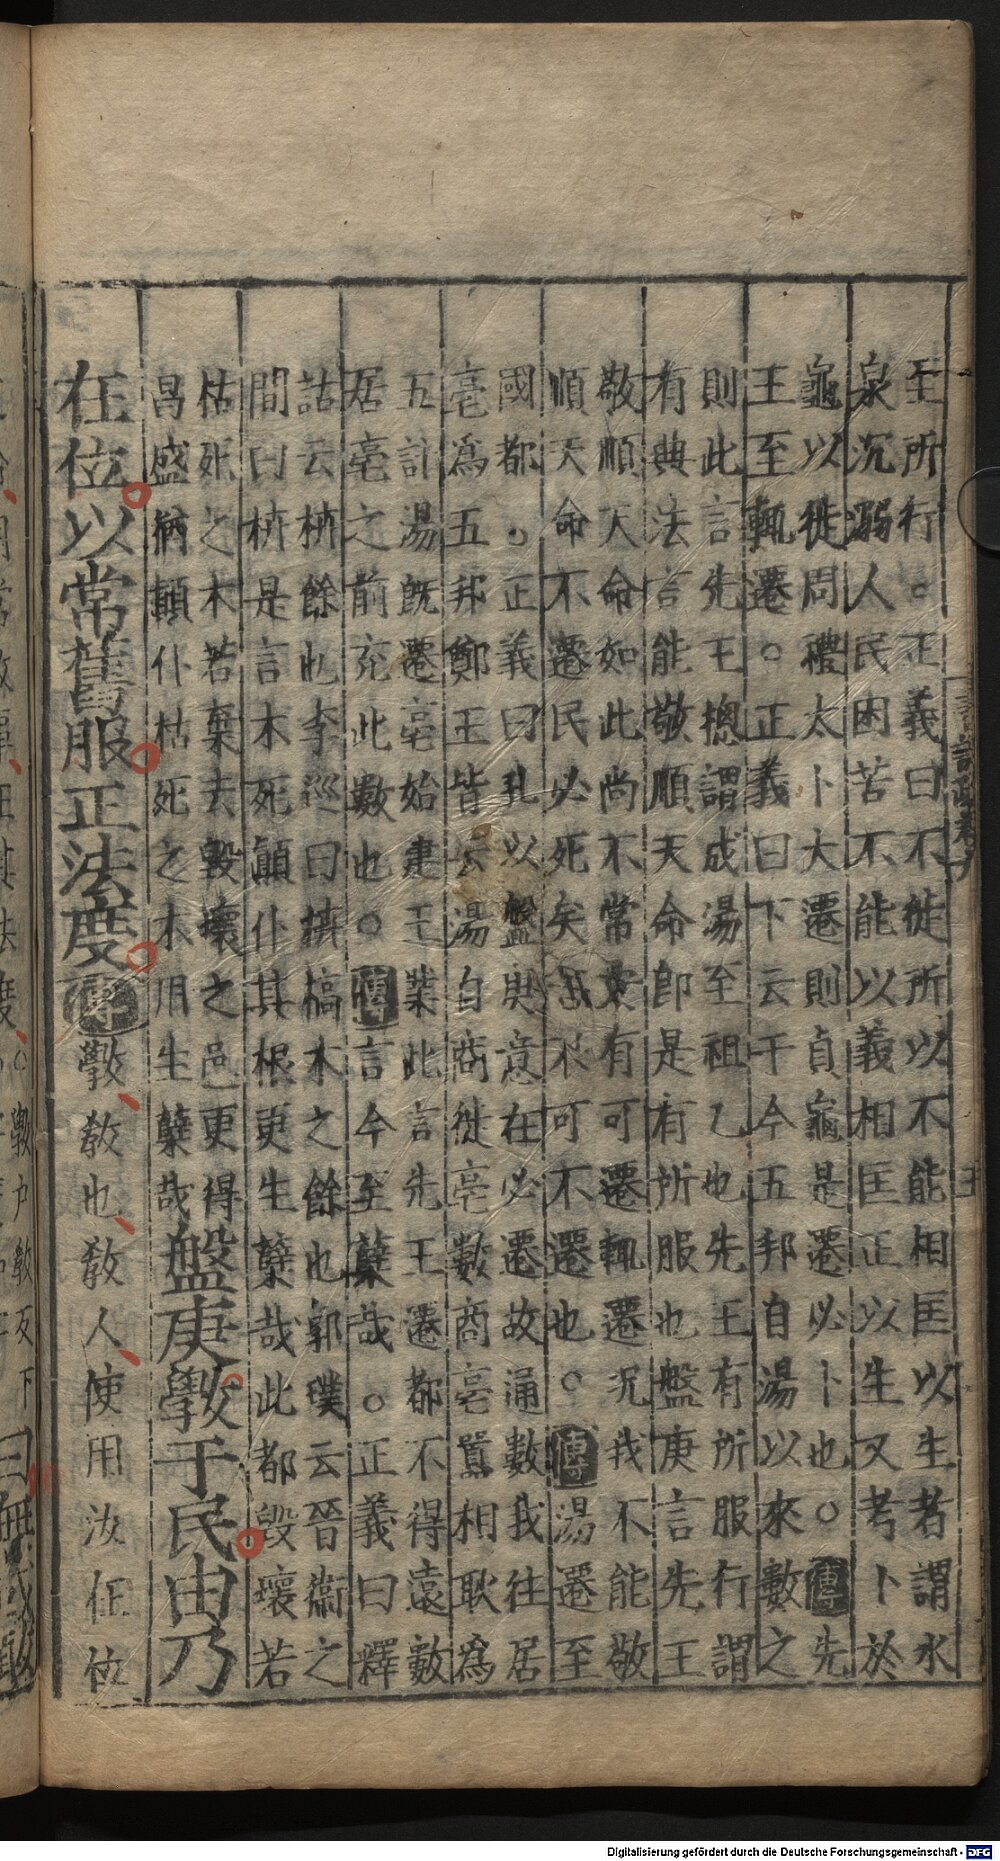 至所行。正義曰不徙所以不能相匡以生者謂水
泉沉溺人民困苦不能以義相匡正以生又考卜於
龜以徙周禮太卜大遷則貞龜是遷必卜也。傳先
王至輒遷。正義曰下云于今五邦自湯以來數之
則此言先王摠謂成湯至祖乙也先王有所服行謂
有典法言能敬順天命即是有所服也盤庚言先王
敬順天命如此尚不常安有可遷輒遷況我不能敬
順天命不遷民必死矣故不可不遷也。傳湯遷至
國都。正義曰孔以盤庚意在必遷故通數我往居
亳爲五邦鄭王皆云湯自商徙亳數商亳囂相耿爲
五計湯既遷亳始建王業此言先王遷都不得遠數
居亳之前充此數也。傳言今至蘖哉。正義曰釋
詁云枿餘也李巡曰槁木之餘也郭璞云晉衞之
間曰枿是言木死顛仆其根更生蘖哉此都毀壞若
枯死之木若棄去毀壞之邑更得
昌盛猶顛仆枯死之木用生蘖哉盤庚斆于民由乃
在位以常舊服正法度傳斆敎也敎人使用汝在位